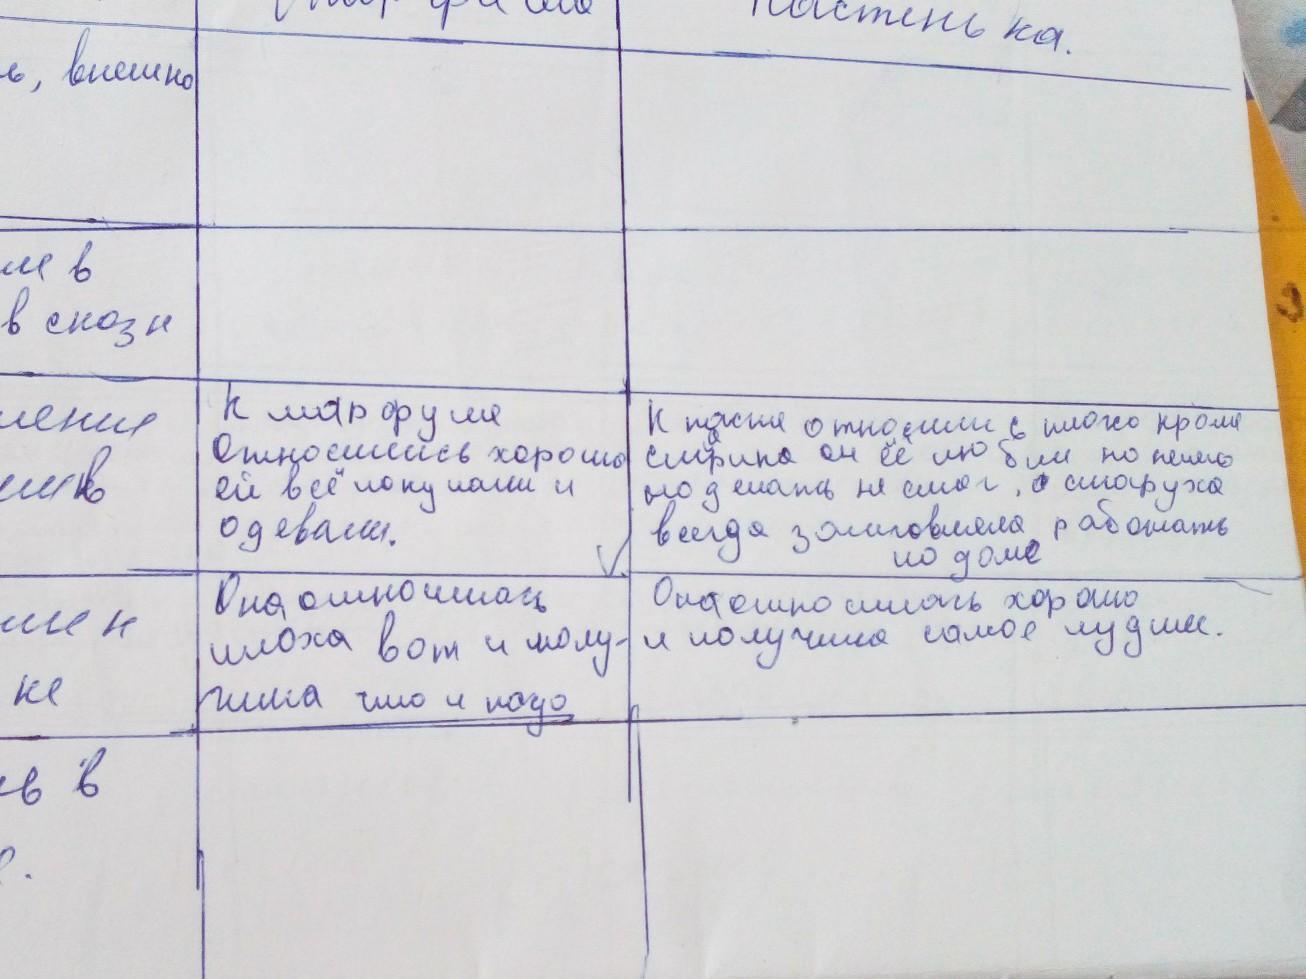 Марфуша
Настенька.
ь, внешно
ли в
в сказк
ление
К марфуше
относились хорошо
ей всё покупали и
одевали.
К насте относили с плохо кроме
старика он её любил но нечего
поделать не смог, а старуха
всегда заставляла работать
по доме
ии к
ке
Она относилась
плоха вот и полу-
чила что и надо
Она относилась хорошо
и получила самое лудшие.
ь в
е.